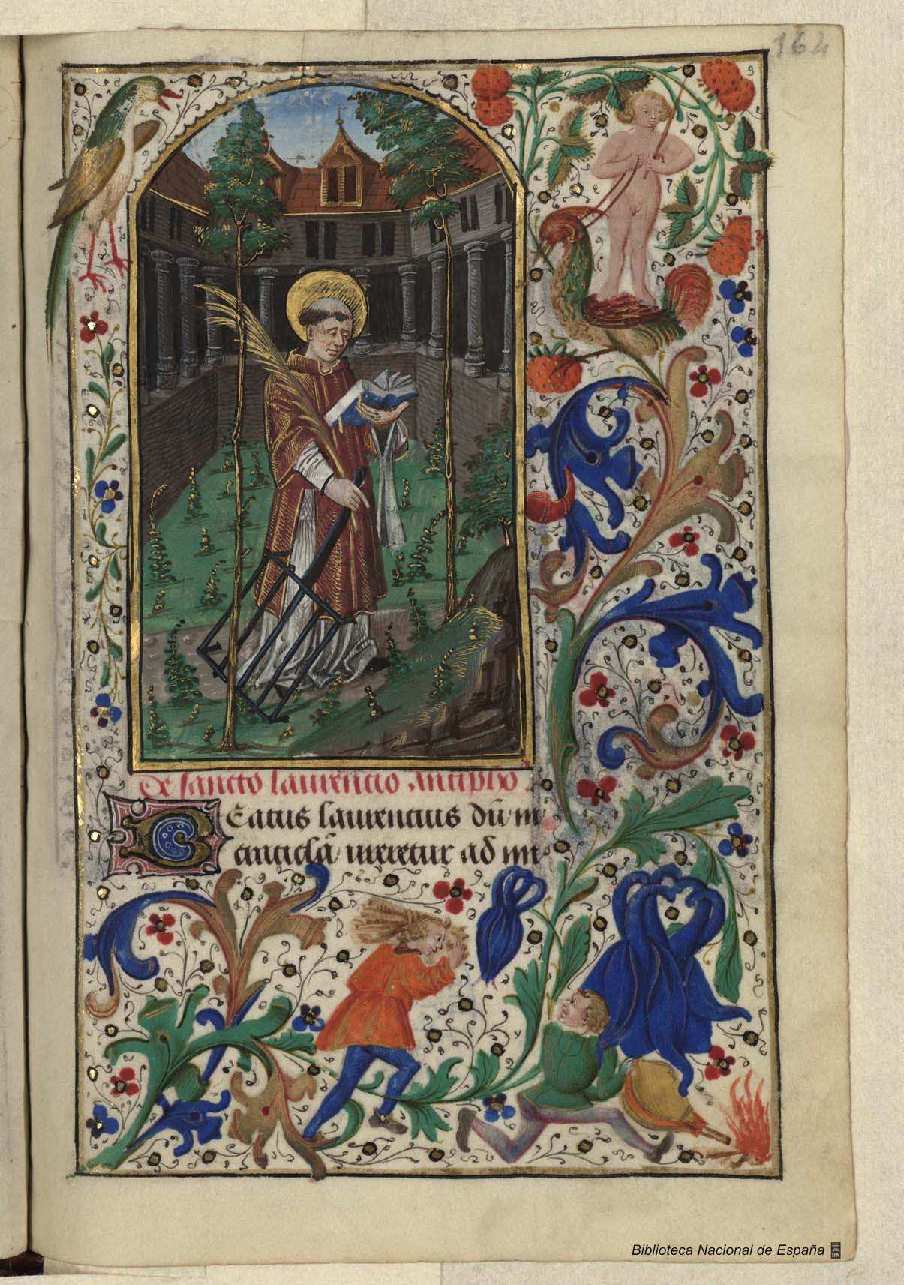 164
De sancto laurencio. Antipho
Beatus laurentius dū m
craticulā ureretur ad in
Biblioteca Nacional de España